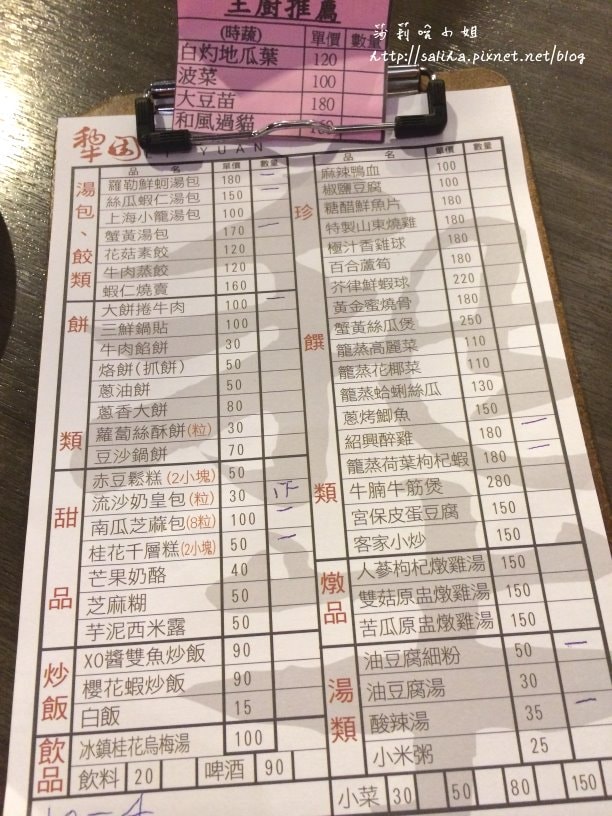 莎莉啥小姐
http://saliha.pixnet.net/blog
主廚推薦
(時蔬) 單價 數量
白灼地瓜葉 120
波菜 100
大豆苗 180
和風過貓
犂园 YUAN
品名 單價 數量
湯包、餃類
羅勒鮮蚵湯包 180
絲瓜蝦仁湯包 150
上海小籠湯包 100
蟹黃湯包 170
花菇素餃 120
牛肉蒸餃 120
蝦仁燒賣 160
餅類
大餅捲牛肉 100
三鮮鍋貼 100
牛肉餡餅 30
烙餅(抓餅) 50
蔥油餅 50
蔥香大餅 80
蘿蔔絲酥餅(粒) 30
豆沙鍋餅 70
甜品
赤豆鬆糕(2小塊) 50
流沙奶皇包(粒) 30
南瓜芝蔴包(8粒) 100
桂花千層糕(2小塊) 50
芒果奶酪 40
芝麻糊 50
芋泥西米露 50
炒飯
XO醬雙魚炒飯 90
櫻花蝦炒飯 90
白飯 15
飲品
冰鎮桂花烏梅湯 100
飲料 20 啤酒 90
品名 單價 數量
珍饌類
麻辣鴨血 100
椒鹽豆腐 100
糖醋鮮魚片 180
特製山東燒雞 180
極汁香雞球 180
百合蘆筍 180
芥律鮮蝦球 220
黃金蜜燒骨 180
蟹黃絲瓜煲 250
籠蒸高麗菜 110
籠蒸花椰菜 110
籠蒸蛤蜊絲瓜 130
蔥烤鯽魚 150
紹興醉雞 180
籠蒸荷葉枸杞蝦 180
牛腩牛筋煲 280
宮保皮蛋豆腐 150
客家小炒 150
燉品
人蔘枸杞燉雞湯 150
雙菇原盅燉雞湯 150
苦瓜原盅燉雞湯 150
湯類
油豆腐細粉 50
油豆腐湯 30
酸辣湯 35
小米粥 25
小菜 30 50 80 150